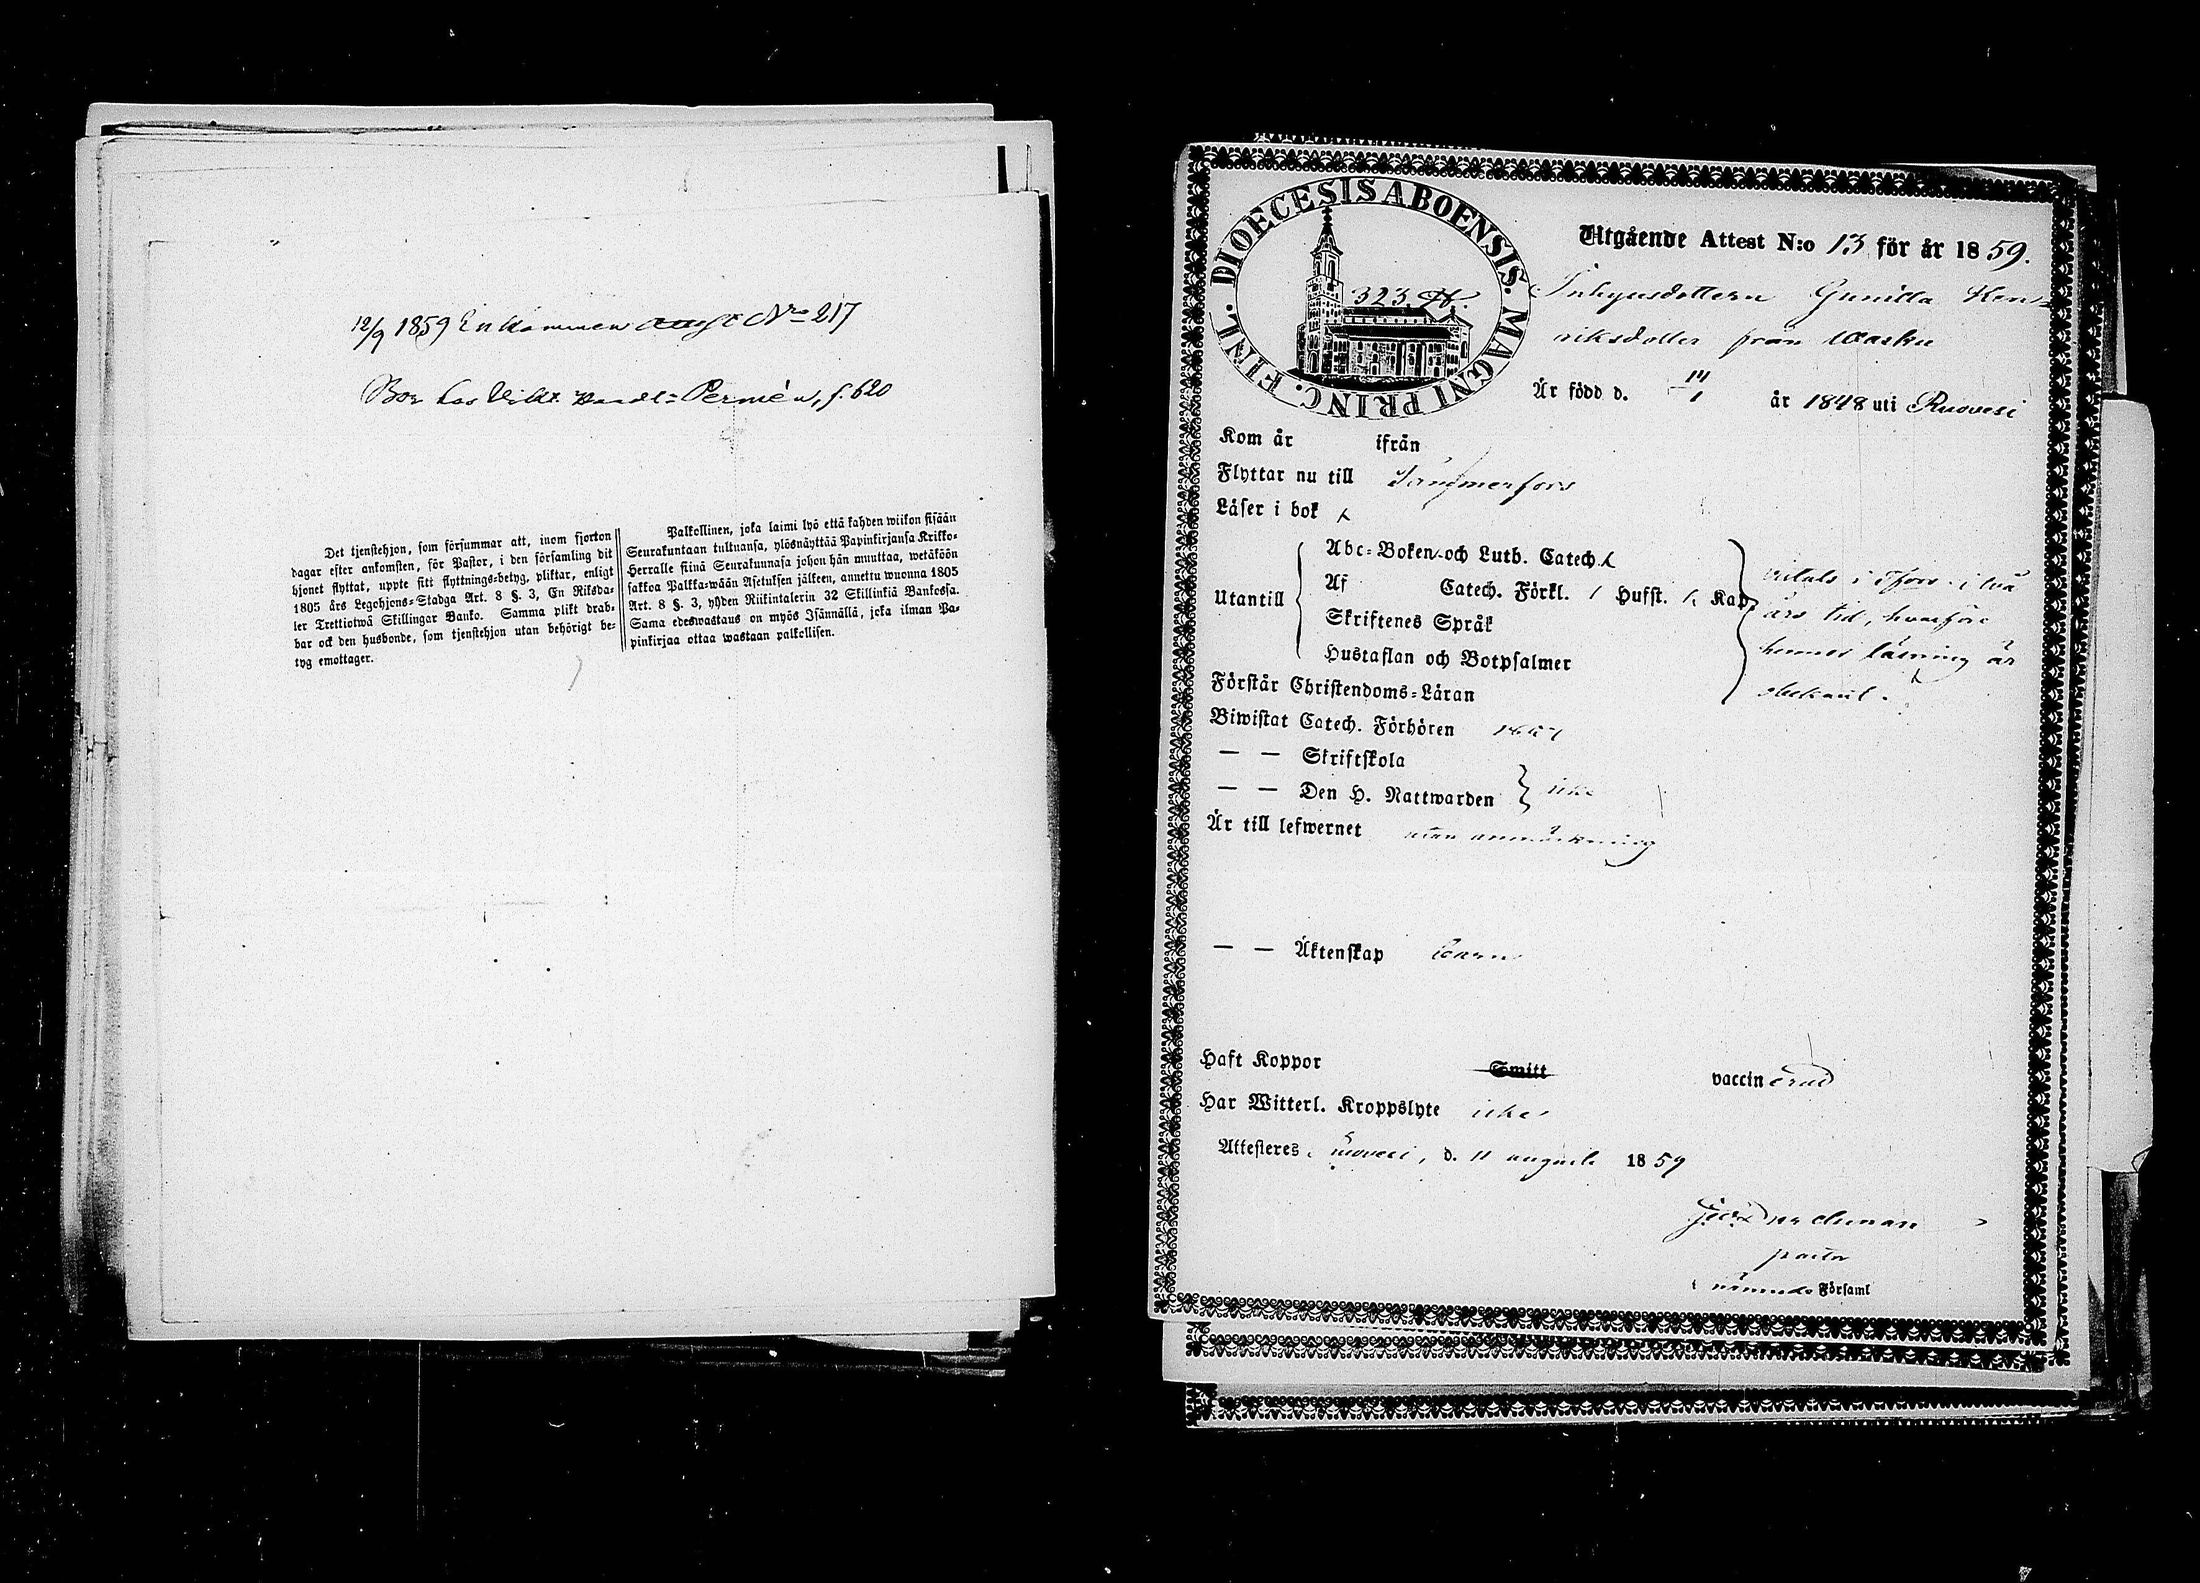 12/9 1859 Enkommen attest No 217
Bor hos Vikt. Handl: Permén, s. 620
Det tjenstehjon, som försummar att, inom fjorton
dagar efter ankomsten, för Pastor, i den församling dit
hjonet flyttat, uppte sitt flyttnings-betyg, pliktar, enligt
1805 års Legohjons-Stadga Art. 8 §. 3, En Riksda-
ler Trettiotwå Skillingar Banko. Samma plikt drab-
bar ock den husbonde, som tjenstehjon utan behörigt be-
tyg emottager.
Palkollinen, joka laimi lyö että kahden wiikon sisään
Seurakuntaan tultuansa, ylösnäyttää Papinkirjansa Kirkko-
Herralle siinä Seurakunnasa johon hän muuttaa, wetäköön
sakkoa Palkka-wään Asetuksen jälkeen, annettu wuonna 1805
Art. 8 §. 3, yhden Riikintalerin 32 Skillinkiä Bankossa.
Sama edeswastaus on myös Isännällä, joka ilman Pa-
pinkirjaa ottaa wastaan palkollisen.
FINL. DIOECESIS ABOENSIS. MAGNI PRINC.
323.
Utgående Attest N:o 13 för år 1859.
Inhysedottern Gunilla Hen-
riksdotter från Warku
Är född d. 14/1 år 1848 uti Ruovesi
Kom år ifrån
Flyttar nu till Tammerfors
Läser i bok
Utantill
Abc-Boken och Luth. Catech.
Af Catech. Förkl. Husst. Kap.
Skriftenes Språk
Hustaflan och Botpsalmer
vistats i Tfors i två
års tid, hvarföre
hennes läsning är
obekant.
Förstår Christendoms-Läran
Biwistat Catech. Förhören
— — Skriftskola
— — Den H. Nattwarden icke
Är till lefwernet utan anmärkning
— — Äktenskap barn
Haft Koppor Smitt vaccinerad
Har Witterl. Kroppslyte icke
Attesteres i Ruovesi, d. 11 augusti 1859
pastor
i nämnde Församl